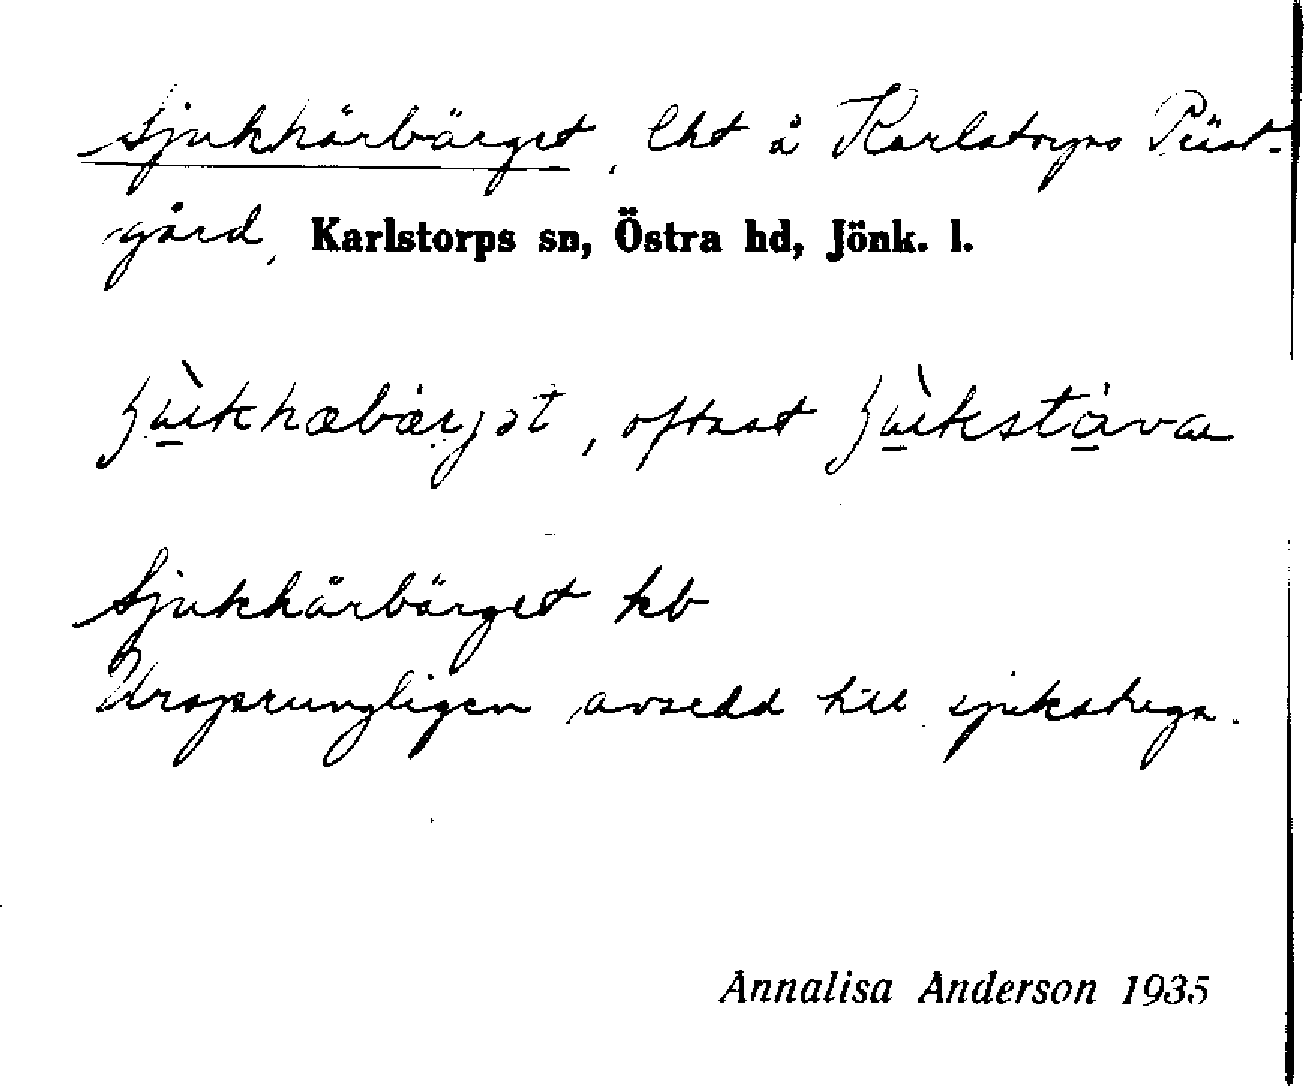 Sjukhärbärget, lht å Karlstorps Präst-
gård, Karlstorps sn, Östra hd, Jönk. l.
oftast
Sjukhärbärget kb
Ursprungligen avsedd till sjukstuga.
Annalisa Anderson 1935